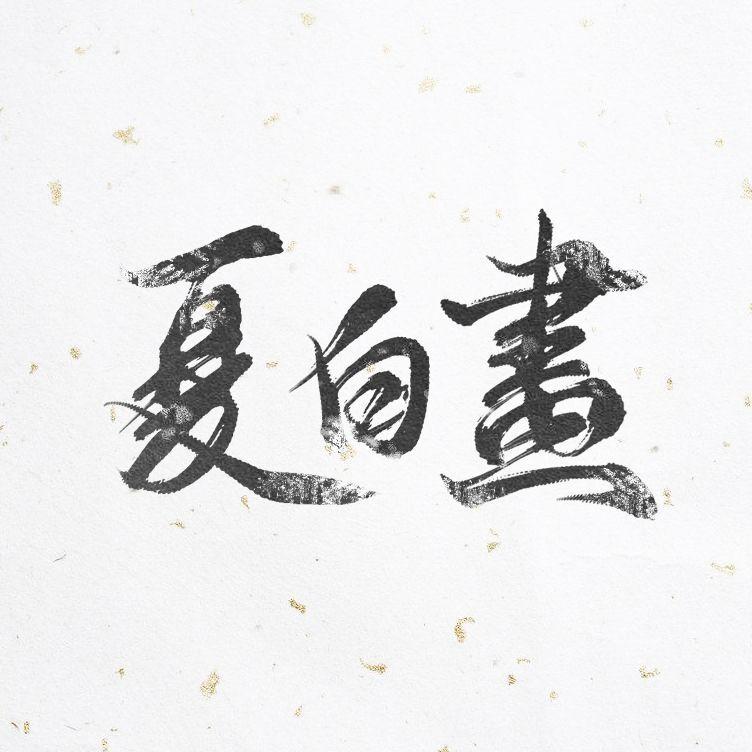 夏白晝